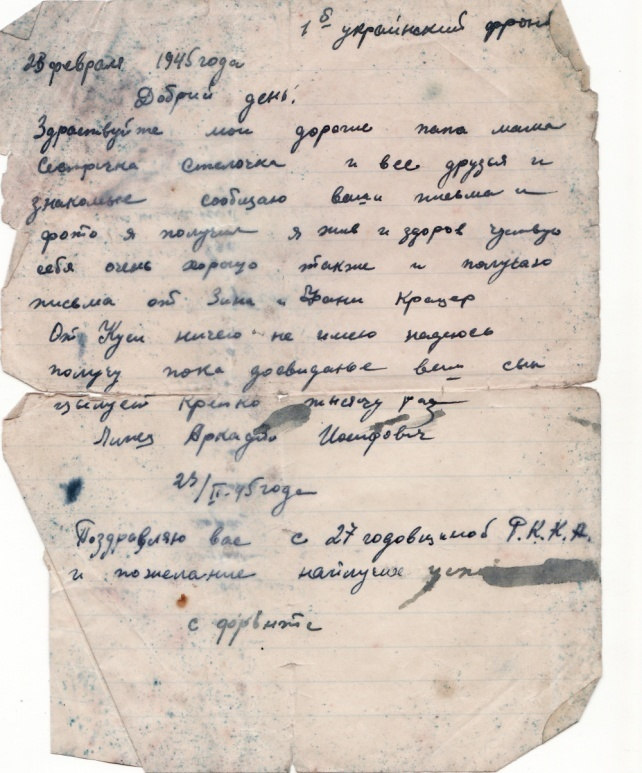 1 б украинский фронт
23 февраля 1945 года
Добрий день!
Здраствуйте мои дорогие папа мама
сестричка стелочка и все друзья и
знакомые сообщаю ваши письма и
фото я получил я жив и здоров чуствую
себя очень хорошо также и получаю
письма от Зини и Фани Крацер
От Куси ничего не имею надеюсь
получу пока досвиданье ваш сын
цылует крепко тысячу раз
Аркадий Иосифович
23/II-45 года
Поздравляю вас с 27 годовщиной Р.К.К.А.
и пожелание найлучих
с